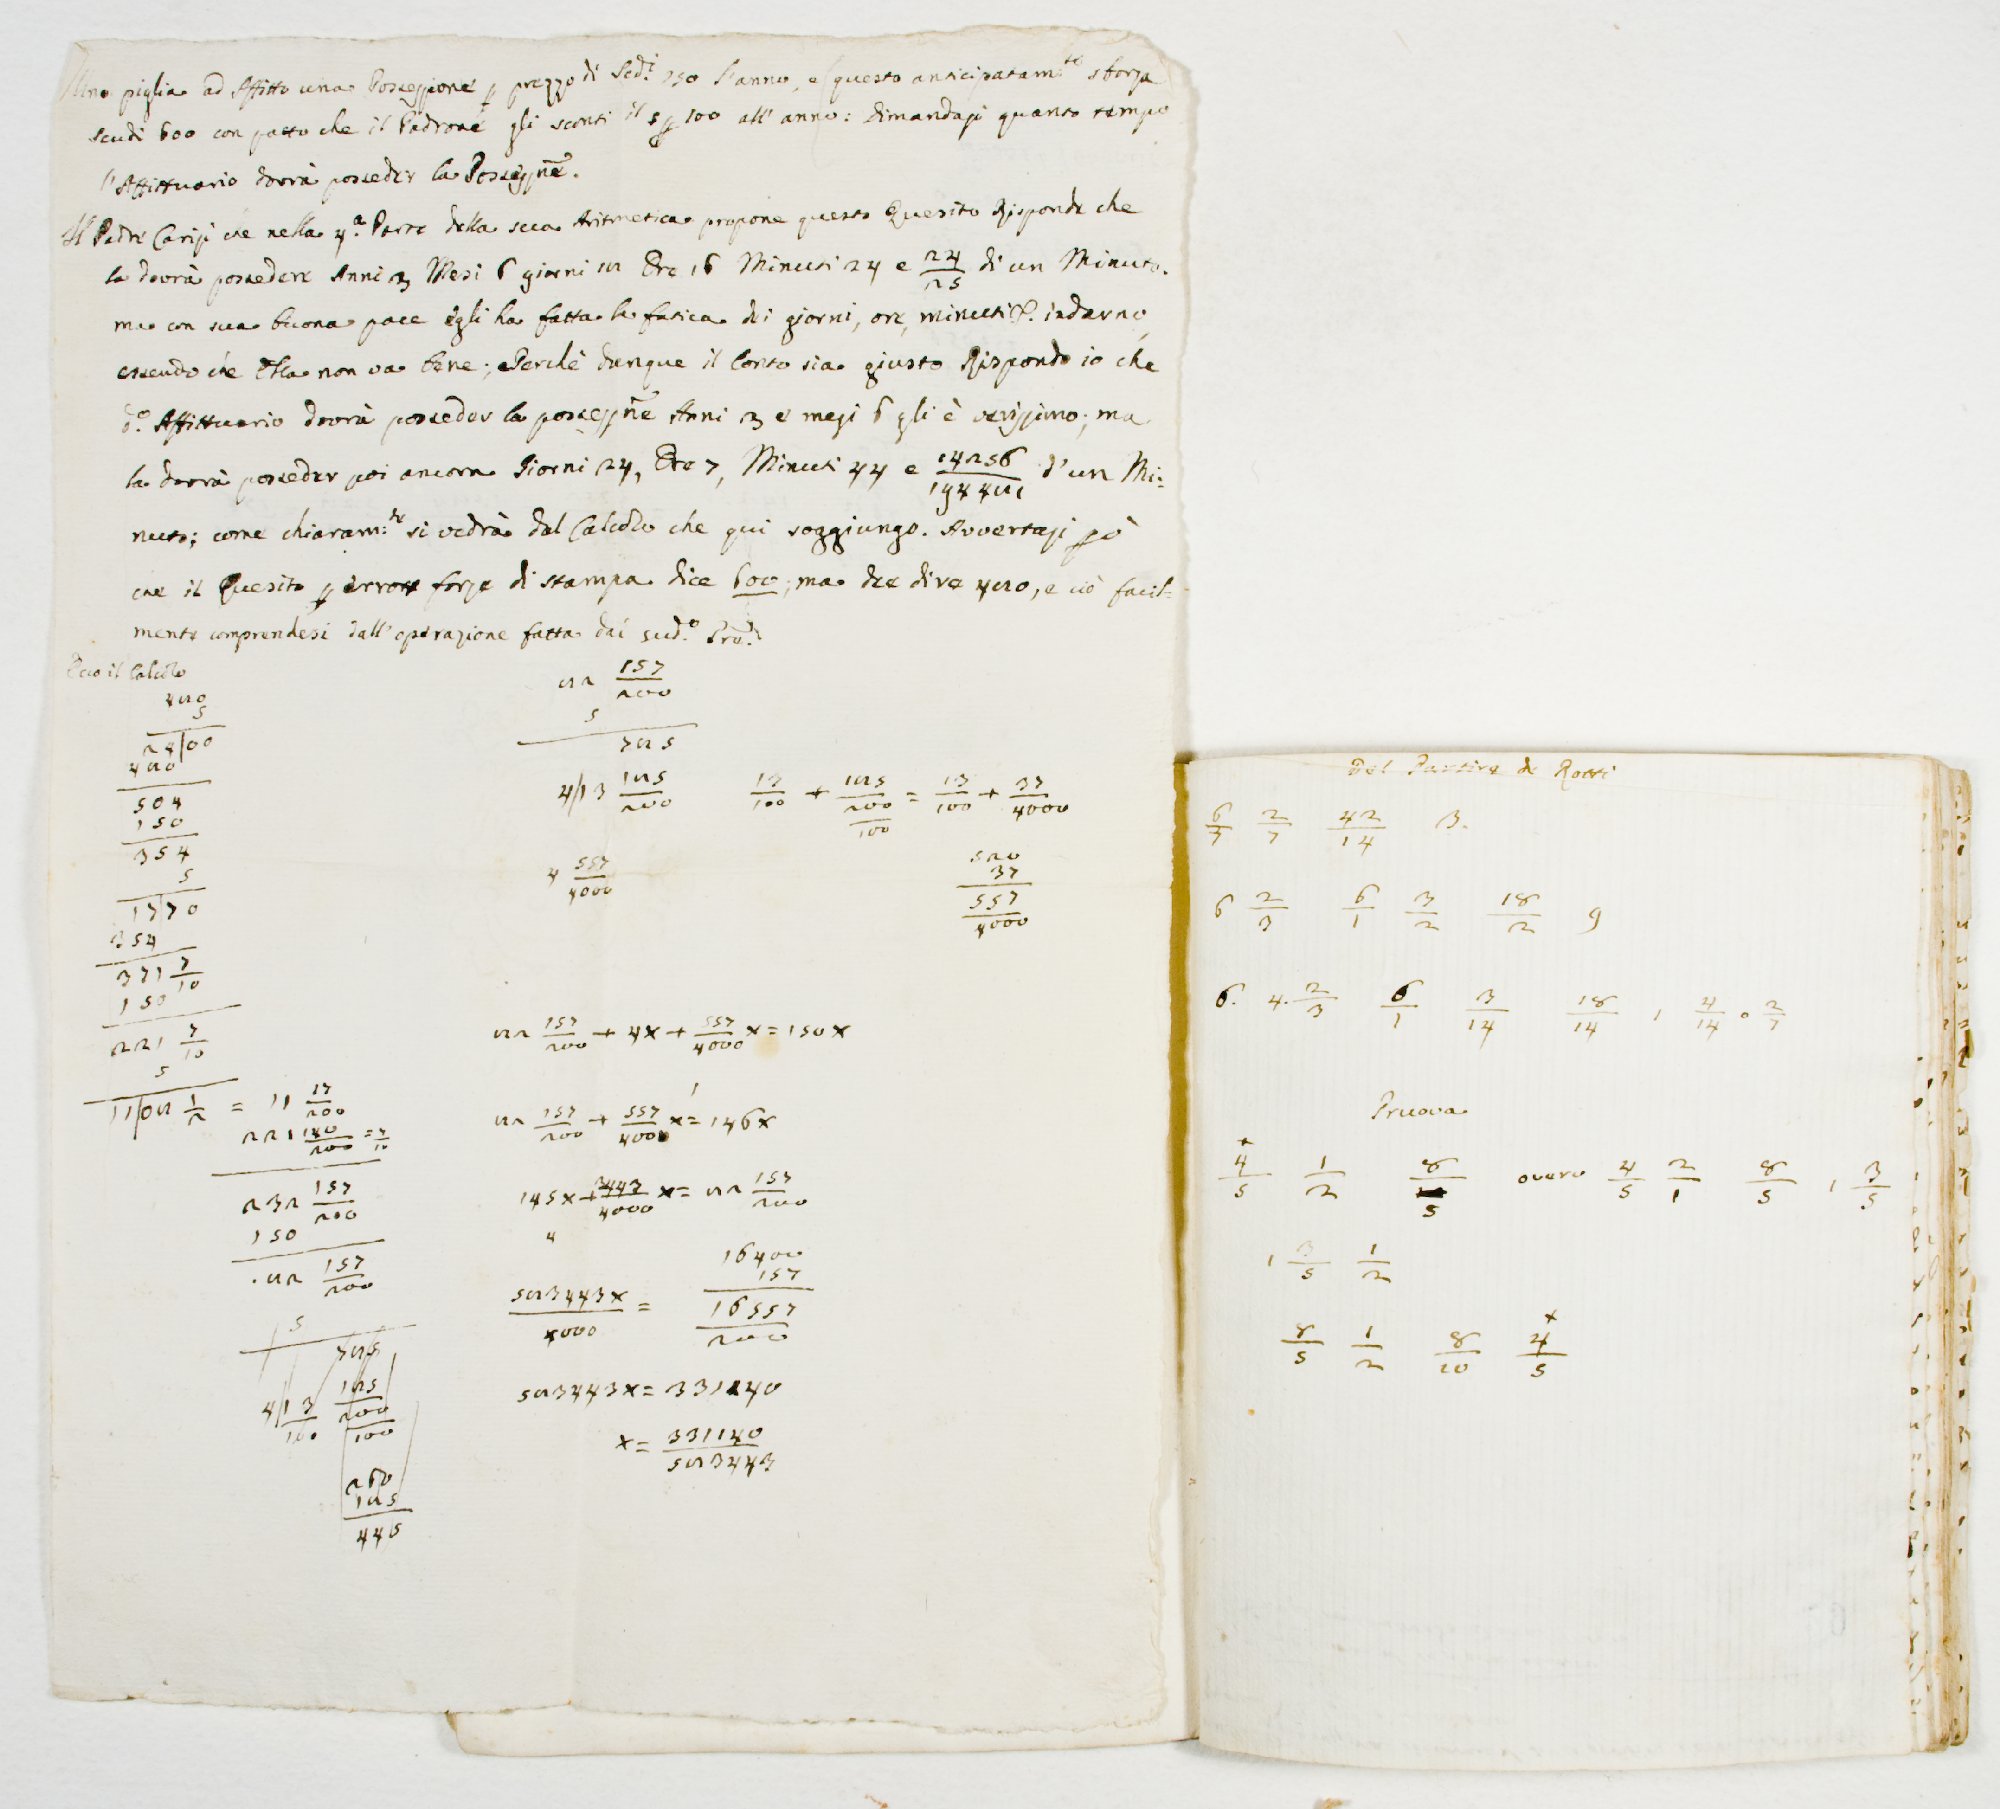 Uno piglia ad Affitto una Possessione p prezzo di Scdi. 150 l'anno, e questo anticipatam.te sborza
scudi 600 con patto che il Padrone gli sconti il 5 p 100 all'anno: dimandasi quanto tempo
l'Affittuario dovrà posseder la Possessne.
Il Padre Carisi che nella 4.a Parte della sua Aritmetica propone questo Quesito Risponde che
la dovrà possedere Anni 3 Mesi 6 giorni 18 Ore 16 Minuti 24 e 24/25 di un Minuto.
ma con sua buona pace egli ha fatta la fatica dei giorni, ore, minuti &. indarno,
essendo che non va bene; Perchè dunque il Conto sia giusto Rispondo io che
d.o Affittuario dovrà posseder la possessne Anni 3 e mesi 6 gli è verissimo; ma
la dovrà posseder poi ancora Giorni 24, Ore 7, Minuti 44 e 14256/194481 d'un Mi-
nuto; come chiaram.te si vedrà dal Calcolo che qui soggiungo. Avvertasi pò
che il Quesito p errore forse di stampa dice 600, ma dee dire 480, e ciò facil-
mente comprendesi dall'operazione fatta dal sud.o
Ecco il Calcolo
480
5
24|00
480
504
150
354
5
1770
354
371 7/10
150
221 7/10
5
11|08 1/2 = 11 17/200
221 140/200 = 7/10
232 157/200
150
82 157/200
5
785
4|13/100 185/200/100
260
185
445
82 157/200
5
785
4|13 185/200 13/100 + 185/200/100 = 13/100 + 37/4000
4 557/4000
520
37
557/4000
82 157/200 + 4x + 557/4000 x = 150x
82 157/200 + 557/4000 x = 146x
145x + 3443/4000 x = 82 157/200
16400
157
583443x/4000 = 16557/200
583443x = 331140
x = 331140/583443
Del Partire de Rotti
6/7 2/7 42/14 3.
6 2/3 6/1 3/2 18/2 9
6. 4. 2/3 6/1 3/14 18/14 1 4/14 o 2/7
Pruova
4/5 1/2 8/5 overo 4/5 2/1 8/5 1 3/5
1 3/5 1/2
8/5 1/2 8/10 4/5